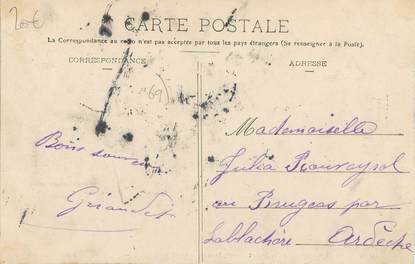 20€
CARTE POSTALE
La Correspondance au recto n'est pas acceptée par tous les pays étrangers (Se renseigner à la Poste).
CORRESPONDANCE
ADRESSE
69
Mademoiselle
Bons
Julia
au par
Lablachère Ardèche